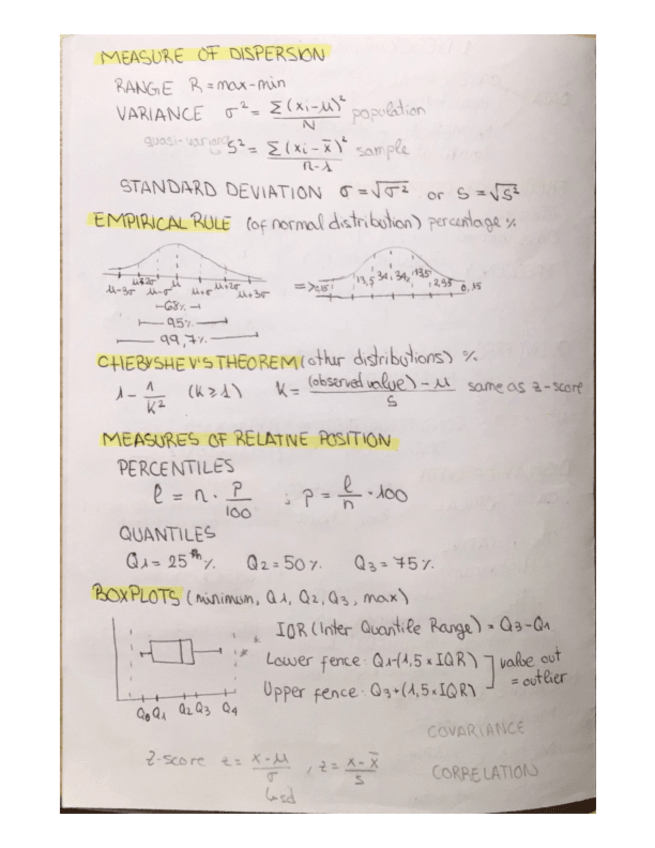 MEASURE OF DISPERSION
RANGE R = max-min
VARIANCE σ² = Σ(xi-μ)² / N population
quasi-varianz S² = Σ(xi-x̄)² / n-1 sample
STANDARD DEVIATION σ = √σ² or S = √S²
EMPIRICAL RULE (of normal distribution) percentage %
μ-3σ μ-σ μ μ+σ μ+2σ μ+3σ
=> 0,15 13,5 34, 34, 13,5 2,35 0,15
68%
95%
99,7%
CHEBYSHEV'S THEOREM (other distributions) %
1 - 1/K² (K≥1) K = (observed value) - μ / S same as z-score
MEASURES OF RELATIVE POSITION
PERCENTILES
ℓ = n · P/100 ; P = ℓ/n · 100
QUANTILES
Q1 = 25th% Q2 = 50% Q3 = 75%
BOXPLOTS (minimum, Q1, Q2, Q3, max)
IQR (Inter Quantile Range) = Q3-Q1
Lower fence: Q1-(1,5 x IQR)
value out = outlier
Upper fence: Q3+(1,5 x IQR)
Q0 Q1 Q2 Q3 Q4
COVARIANCE
Z-score z = x-μ / σ , z = x-x̄ / S
CORRELATION
sd